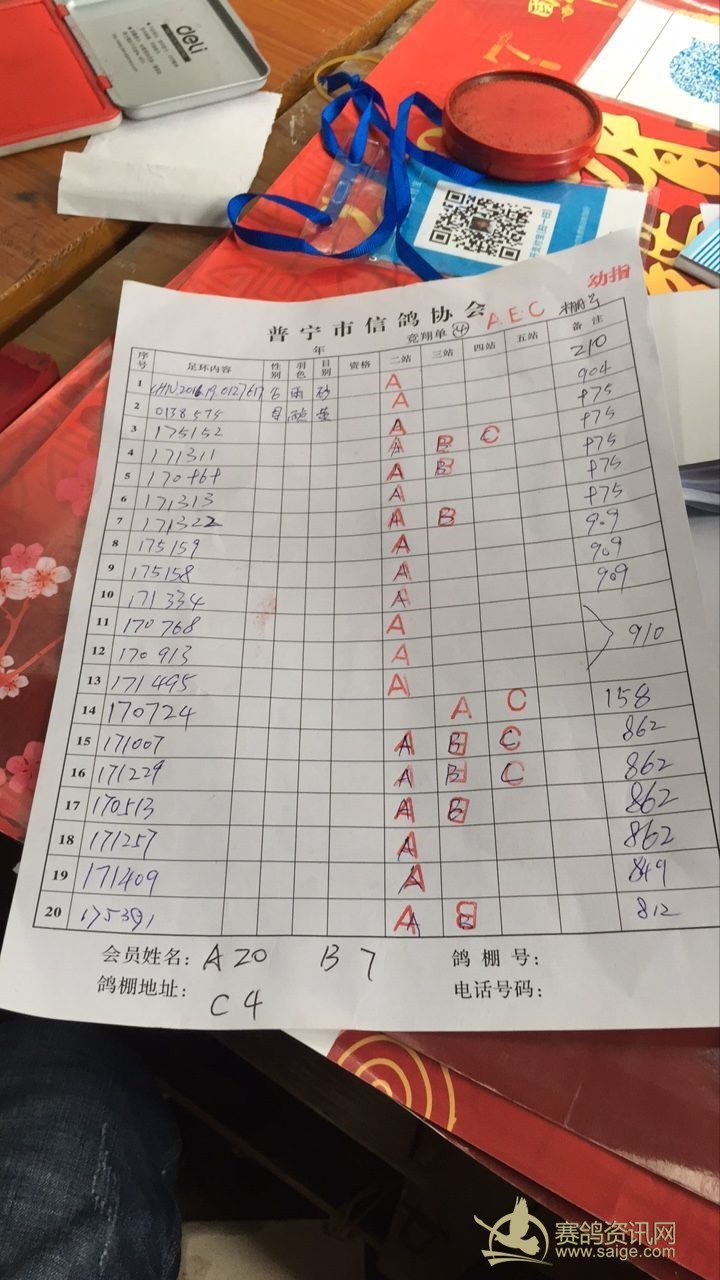 deli
幼指
普宁市信鸽协会
A E C
年
竞翔单 ④
棚号
序号 足环内容 性别 羽色 目别 资格 二站 三站 四站 五站 备注
1 CHN2016.19.0127617 雨 砂 A 210
2 0138575 A 904
3 175152 A 875
4 171311 A B C 875
5 170868 A B 875
6 171313 A 875
7 171322 A B 875
8 175159 A 909
9 175158 A 909
10 171334 A 909
11 170768 A
12 170913 A 910
13 171495 A
14 170724 A C 158
15 171007 A B C 862
16 171229 A B C 862
17 170513 A B 862
18 171257 A 862
19 171409 A 849
20 175391 A B 812
会员姓名: A 20 B 7 鸽棚号:
鸽棚地址: C 4 电话号码:
赛鸽资讯网
www.saige.com